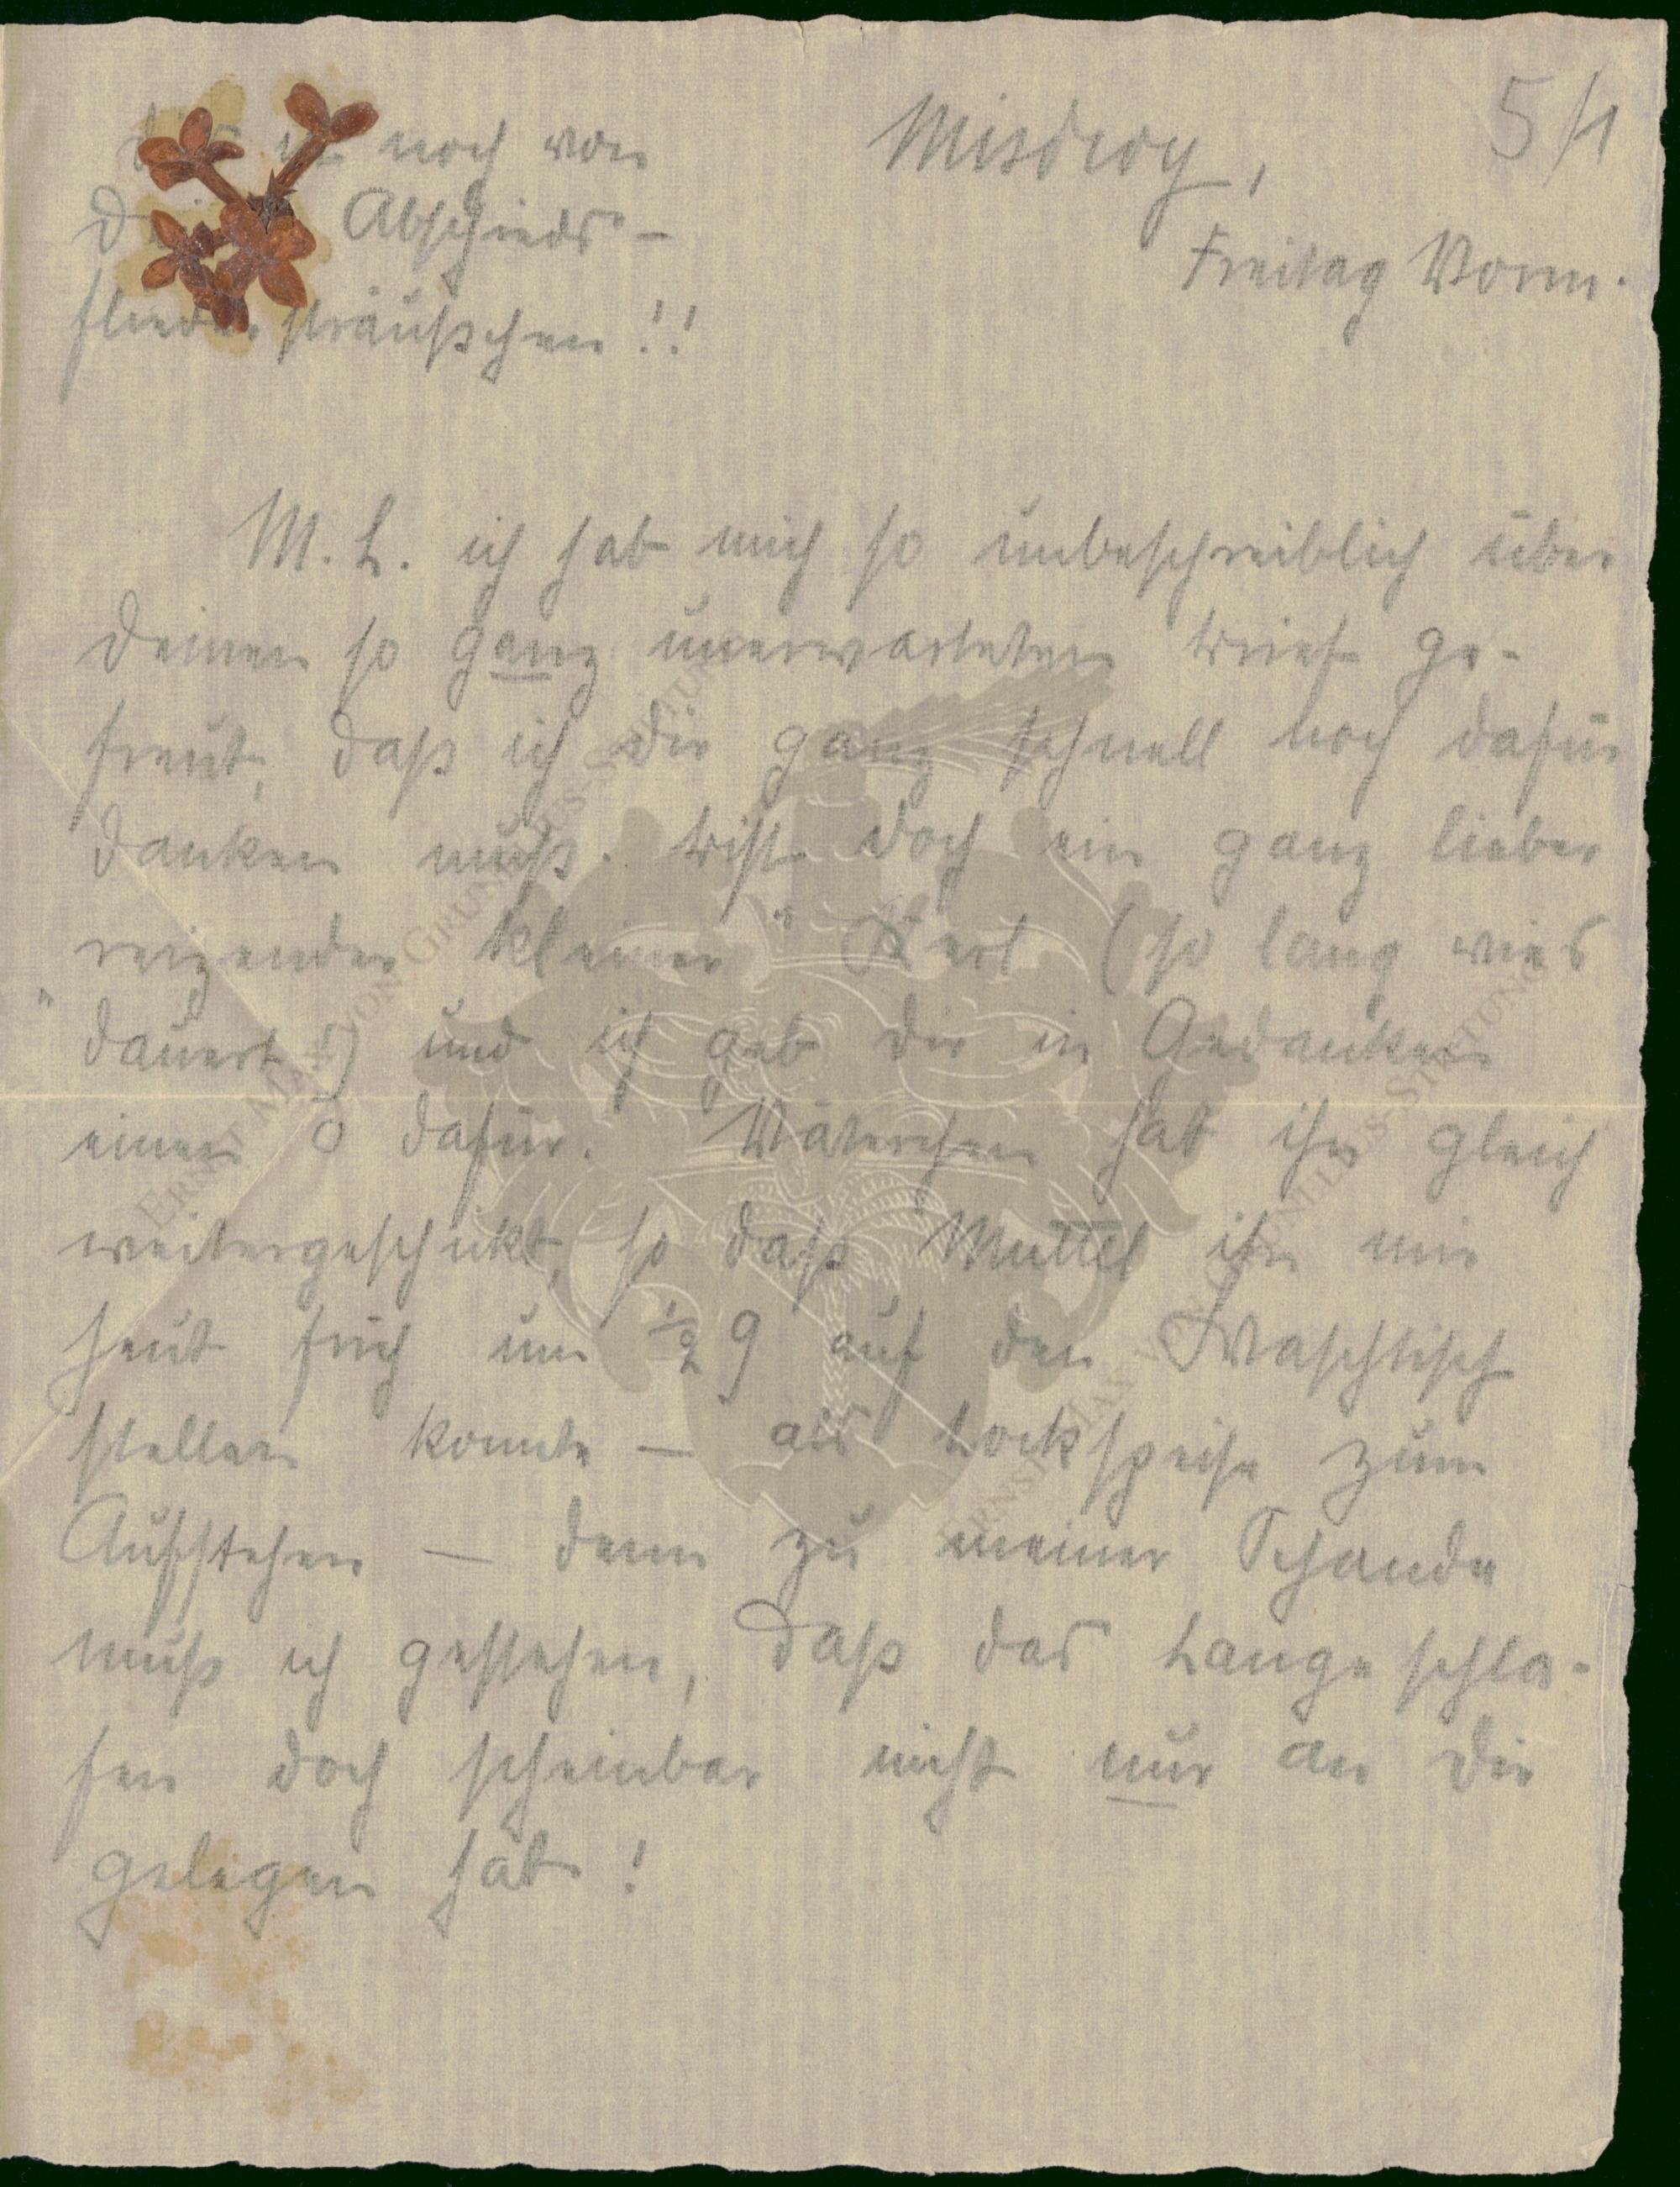 5/1
Misdroy,
Freitag Vorm.
noch von
Abschieds-
fliedersträußchen!!
M. L. ich hab mich so unbeschreiblich über
Deinen so ganz unerwarteten Brief ge-
freut, daß ich Dir ganz schnell noch dafür
danken muß. Bist doch ein ganz lieber
reizender "kleiner" Kerl (so lang wies
dauert!) und ich geb Dir in Gedanken
einen O dafür. Väterchen hat ihn gleich
weitergeschikt, so daß Muttel ihn mir
heut früh um ½ 9 auf den Waschtisch
stellen konnte — als Lockspeise zum
Aufstehen — denn zu meiner Schande
muß ich gestehen, daß das Langeschla-
fen doch scheinbar nicht nur an Dir
gelegen hat!
ERNST MAX VON GRUNELIUS-STIFTUNG
ERNST MAX VON GRUNELIUS-STIFTUNG